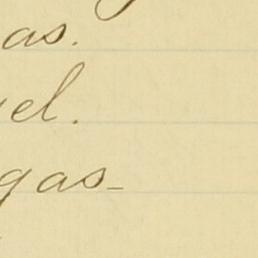 as.
el.
gas_